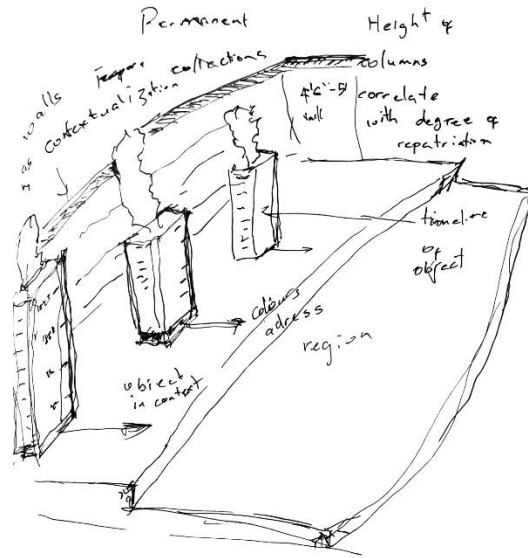 Permanent
Height of
columns
correlate
with degree of
repatriation
walls
contextualization collections
4'6"-5'
wall
timeline
of
object
colours
adress
region
object
in context